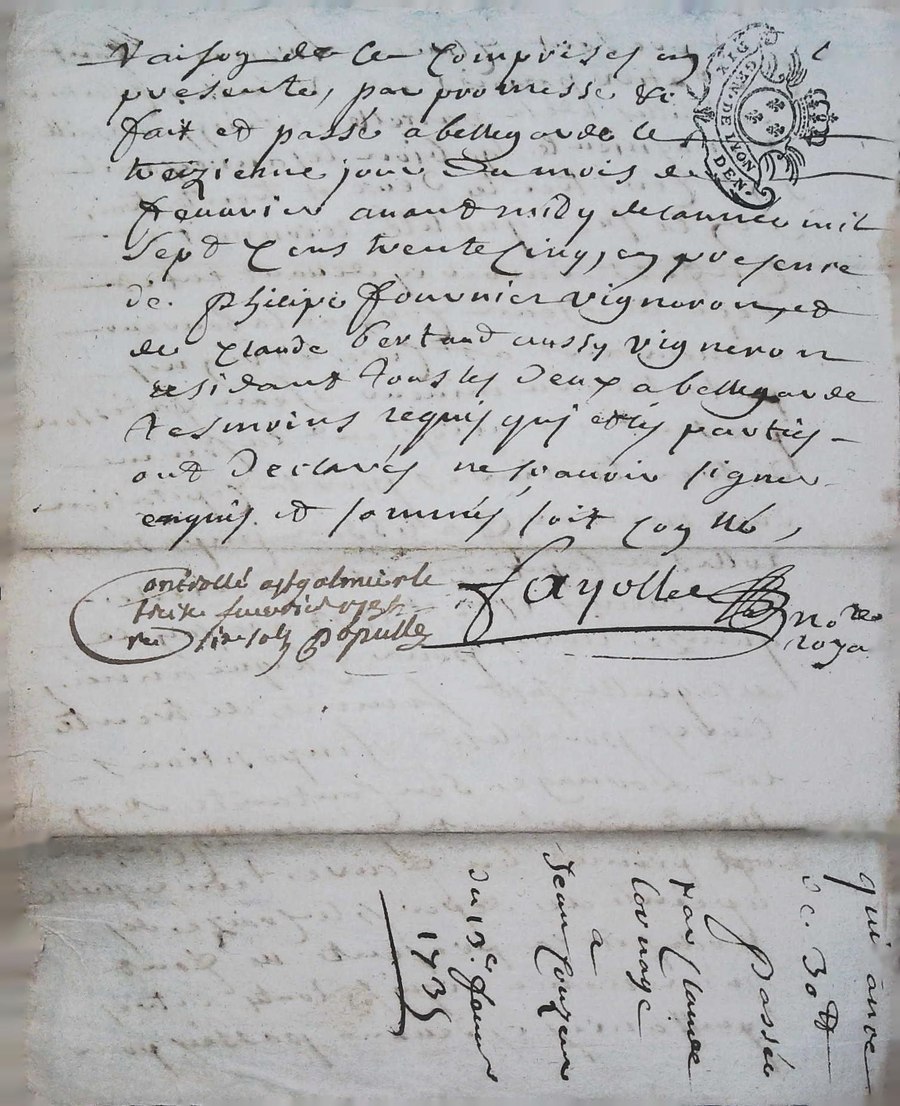 raison de ce comprises en
presente, par promesse &c
fait et passé a bellegarde le
treizienne jour du mois de
feuvrier auant midy de lannee mil
sept cens trente cinq, en presence
de philipe fournier vigneron, et
de claude bertaud aussy vigneron
residant tous les deux a bellegarde
tesmoins requis qui et les parties
ont declarés ne scauoir signer
enquis et sommés soit con lé,
fayolle
no.re
roya
ontrollé a st galmier le
treize feuvrier 1735
re six sols populle
DIX
GEN. DE LYON
DEN.
quittance
de 30 tt
passée
par Claude
Cornage
a
Jean Couzon
du 13e feur
1735